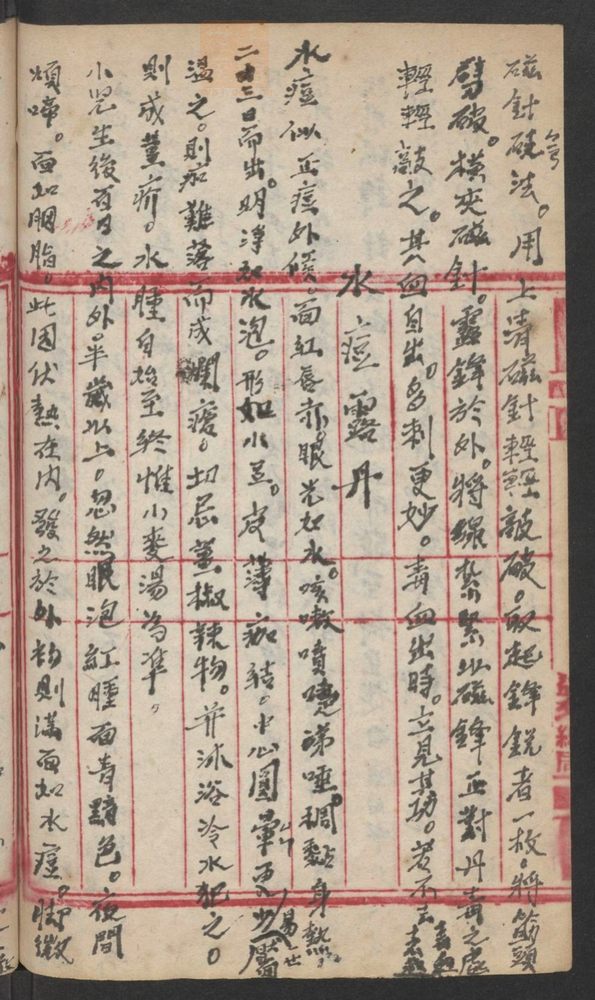 磁針砭法。用上清磁針輕輕敲破。取起鋒銳者一枚。將筯頭
劈破。橫夾磁針。露鋒於外。將線紮緊以磁鋒正對丹毒之處
輕輕敲之。其血自出。多刺更妙。毒血出時。立見其功。若不去毒血
水痘露丹
水痘似正痘外候。面紅唇赤。眼光如水。咳嗽噴嚏涕唾稠黏身熱。
二三日而出。明淨如水泡。形如小豆。皮薄痂結。中心圓暈更少易靨
溫之。則痂難落而成爛瘡。切忌薑椒辣物。并沐浴冷水犯之。
則成薑疥。水腫自始至終惟小麥湯為準。
小兒生後百日之內外。半歲以上。忽然眼泡紅腫面青黯色。夜間
煩啼。面如胭脂。此因伏熱在內。發之於外初則滿面如水痘。脚微